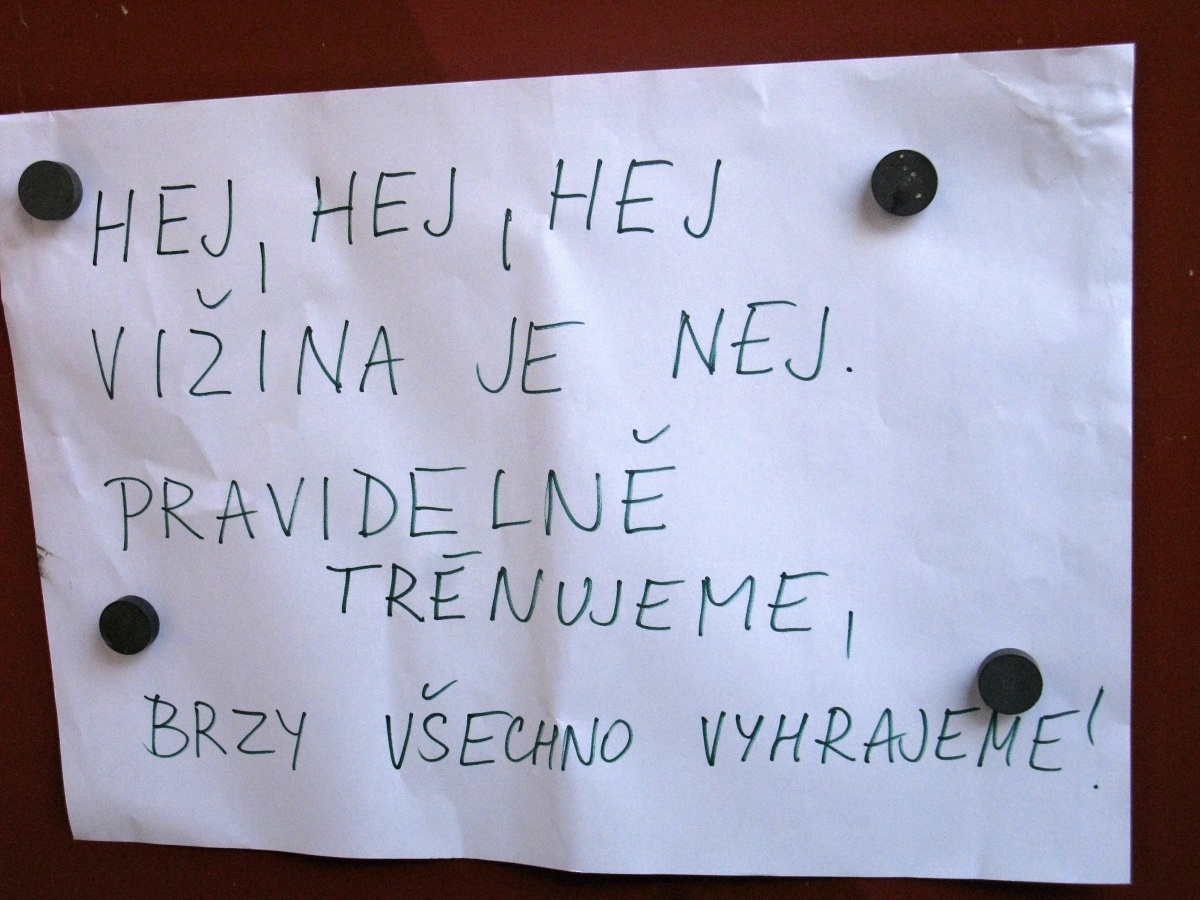 HEJ, HEJ, HEJ
VIŽINA JE NEJ.
PRAVIDELNĚ
TRÉNUJEME,
BRZY VŠECHNO VYHRAJEME!